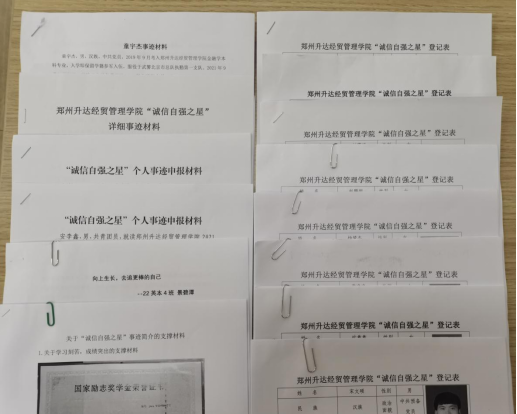 董宇杰事迹材料
郑州升达经贸管理学院“诚信自强之星”
详细事迹材料
“诚信自强之星”个人事迹申报材料
“诚信自强之星”个人事迹申报材料
向上生长，去追更棒的自己
--22 英本 4 班
关于“诚信自强之星”事迹简介的支撑材料
1.关于学习刻苦，成绩突出的支撑材料
国家励志奖学金荣誉证书
郑州升达经贸管理学院“诚信自强之星”登记表
郑州升达经贸管理学院“诚信自强之星”登记表
郑州升达经贸管理学院“诚信自强之星”登记表
郑州升达经贸管理学院“诚信自强之星”登记表
郑州升达经贸管理学院“诚信自强之星”登记表
郑州升达经贸管理学院“诚信自强之星”登记表
郑州升达经贸管理学院“诚信自强之星”登记表
郑州升达经贸管理学院“诚信自强之星”登记表
姓 名 性别 男
民 族 汉族 政治